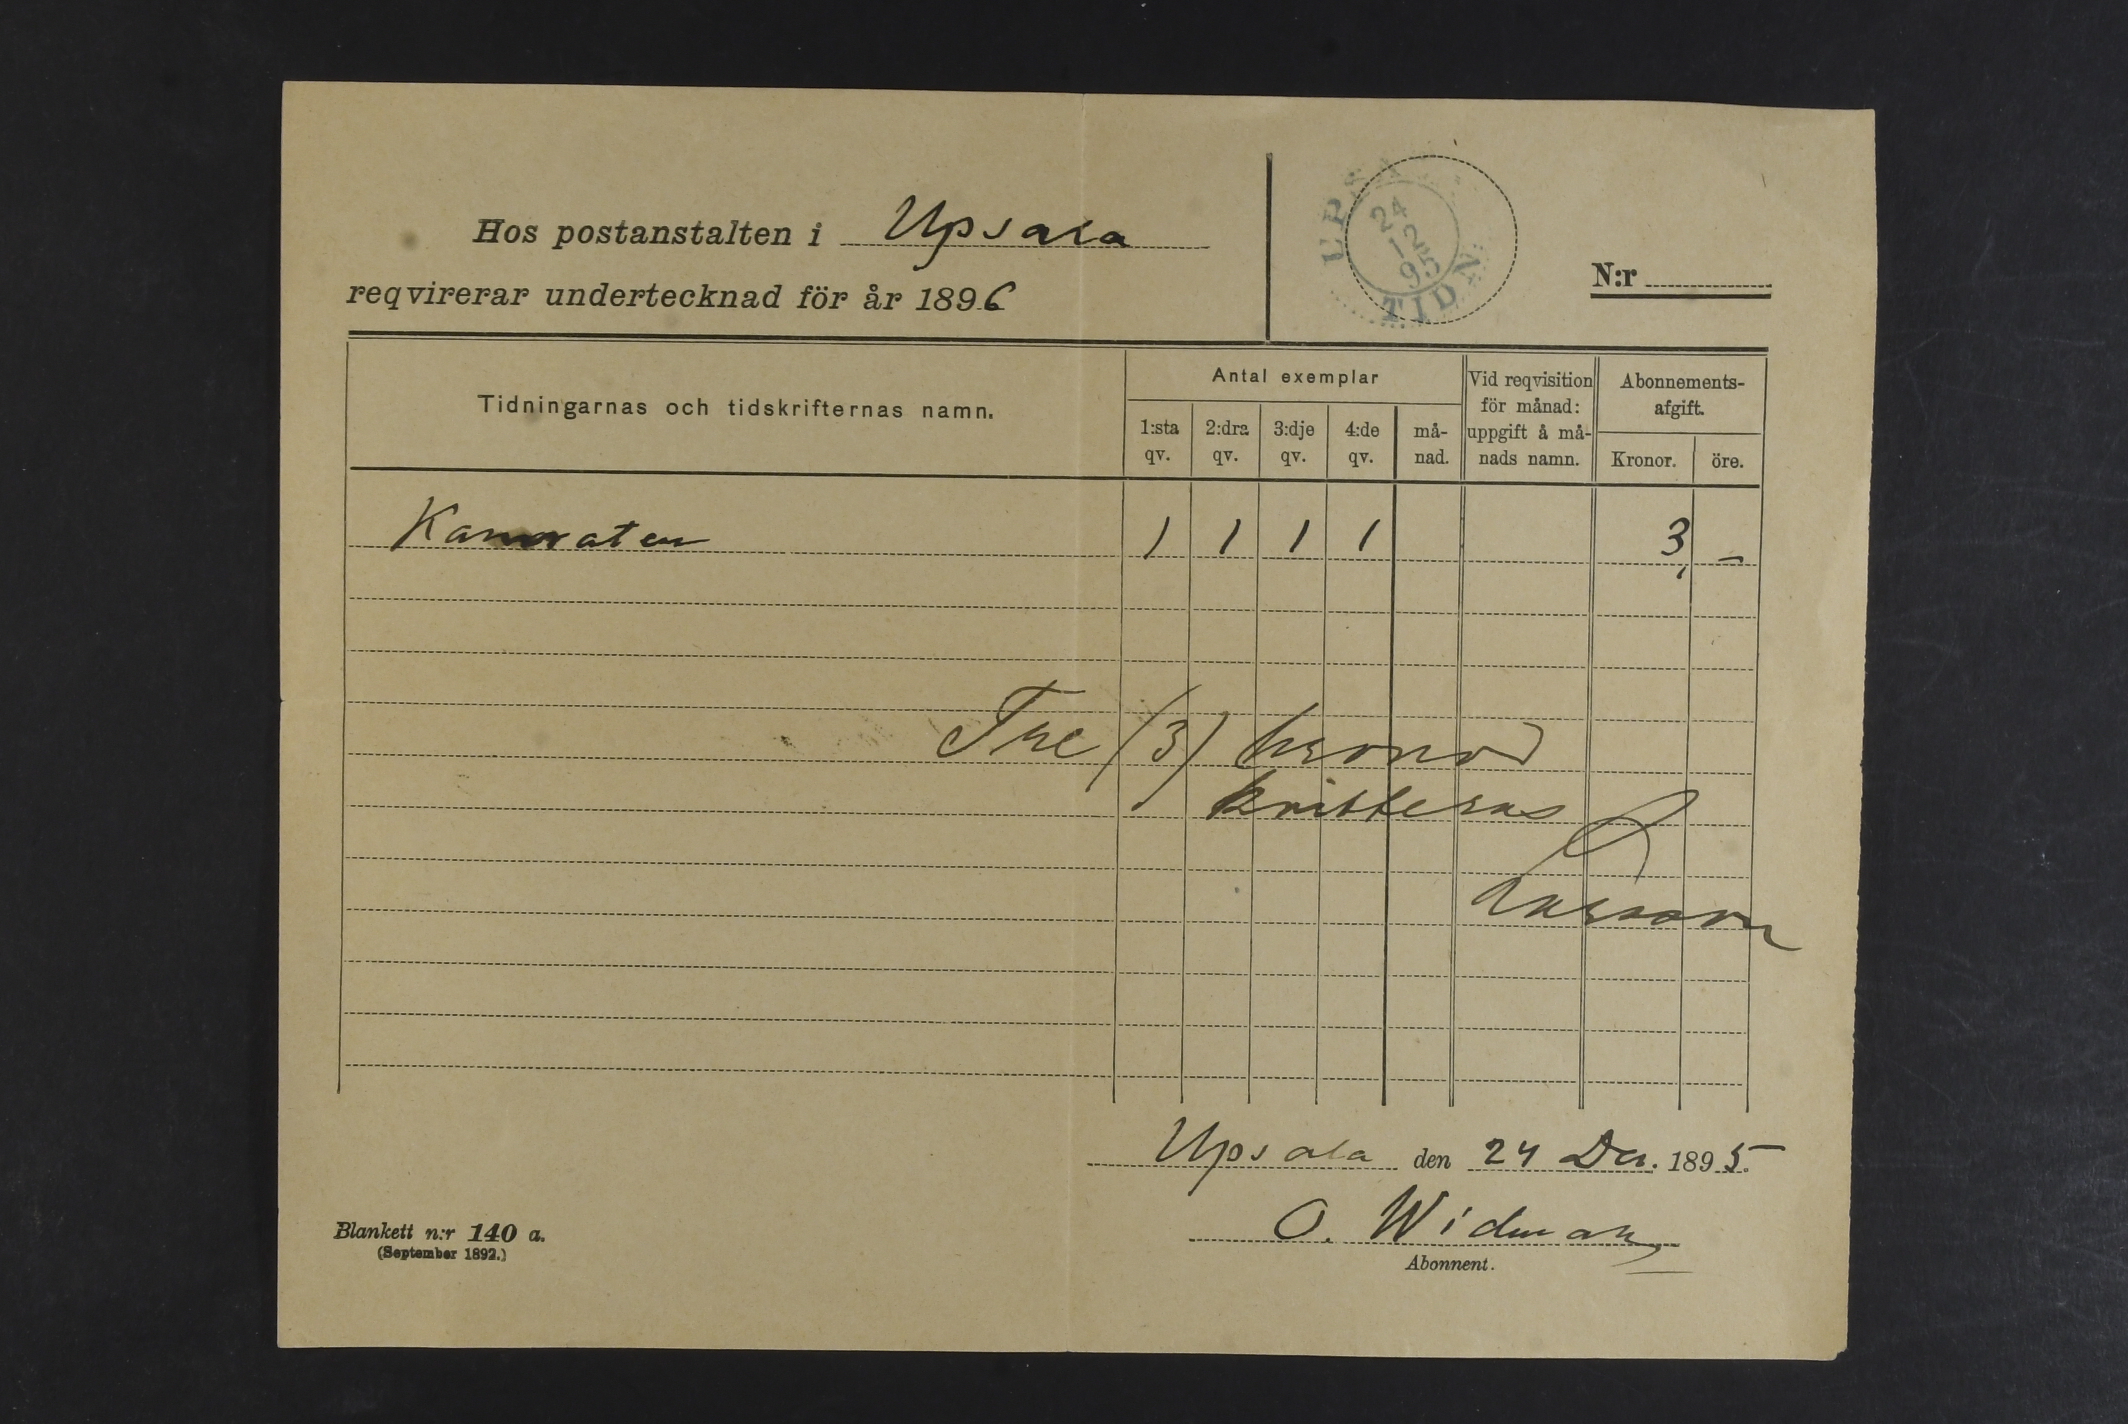 Hos postanstalten i Upsala
reqvirerar undertecknad för år 1896
UPSALA
24
12
95
TIDN.
N:r
Tidningarnas och tidskrifternas namn.
Antal exemplar
1:sta qv.
2:dra qv.
3:dje qv.
4:de qv.
må-
nad.
Vid reqvisition
för månad:
uppgift å må-
nads namn.
Abonnements-
afgift.
Kronor.
öre.
Kamraten 1 1 1 1 3, –
Tre (3) kronor
kvitteras
Larsson
Upsala den 24 Dec. 1895.
O. Widman
Abonnent.
Blankett n:r 140 a.
(September 1892.)